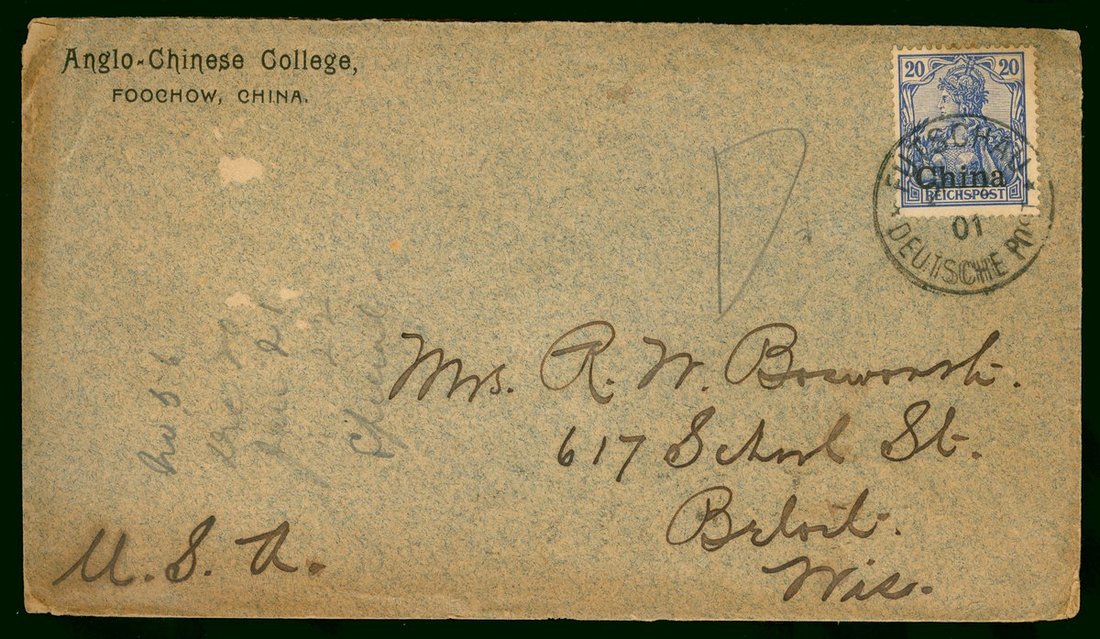 Anglo-Chinese College,
FOOCHOW, CHINA.
20 20
China
REICHSPOST
FUTSCHAU
01
DEUTSCHE POST
D.
Mrs. R. W. Bosworth.
617 School St.
Beloit.
Wis.
U. S. A.